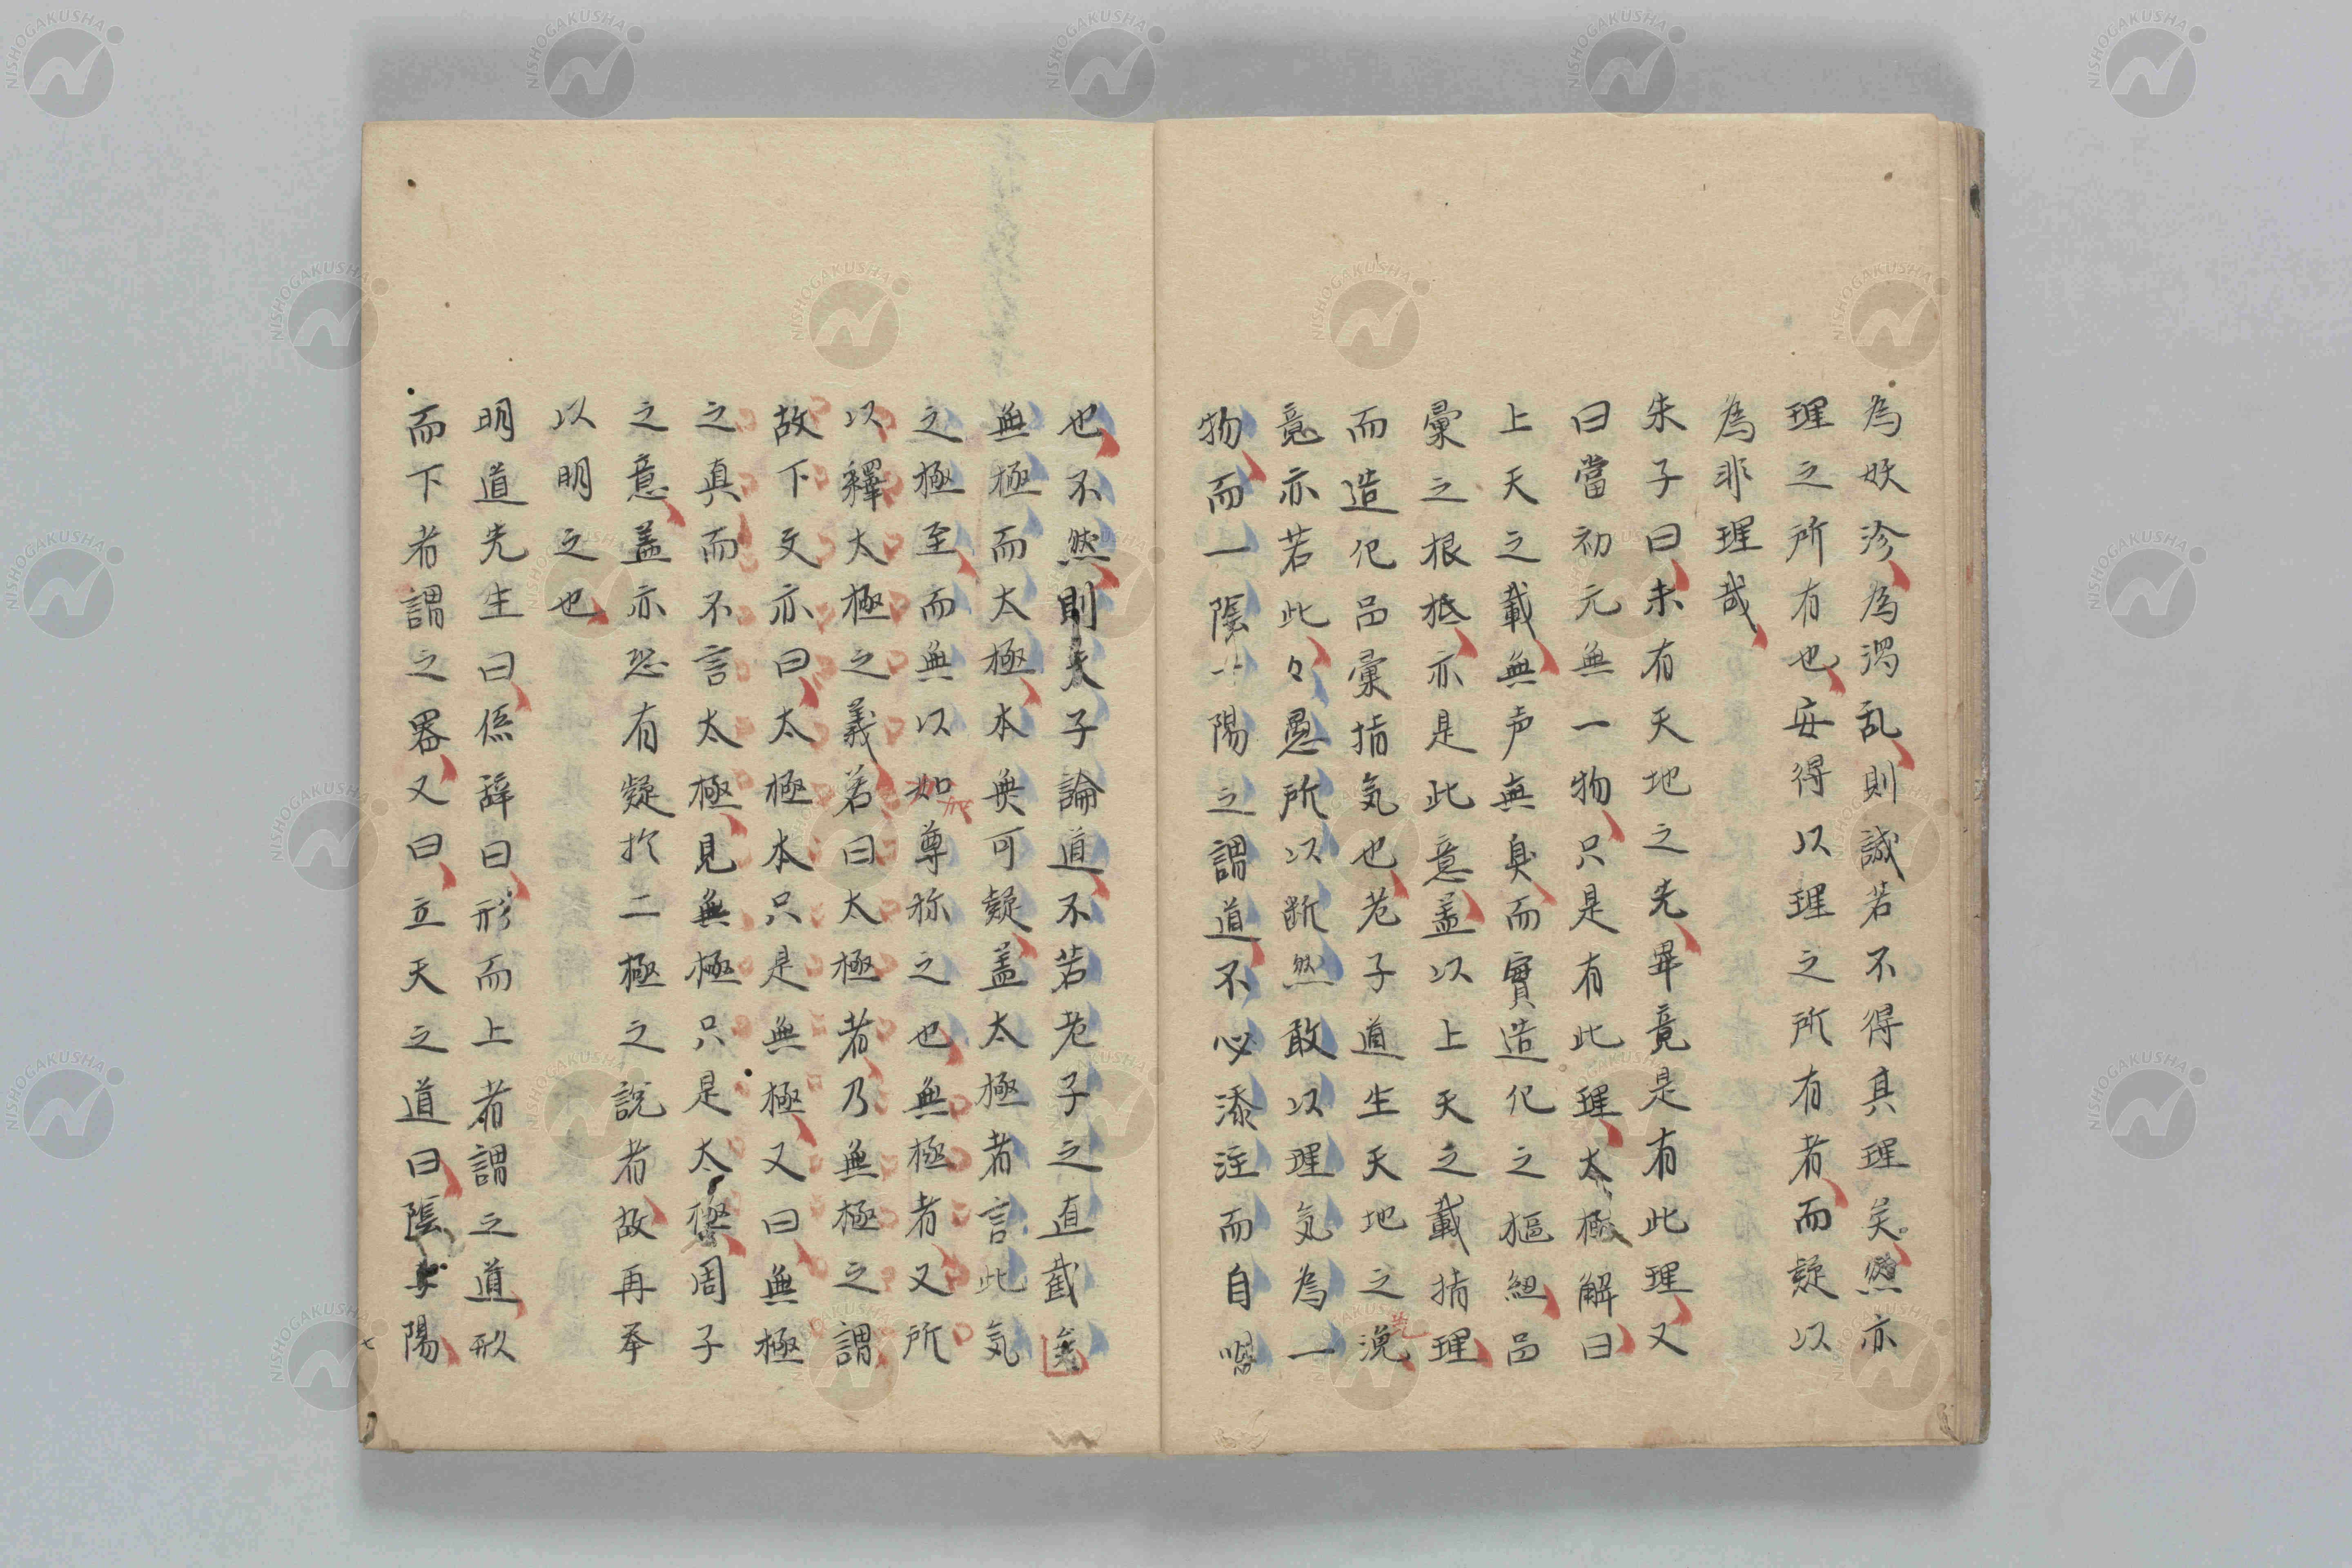 為妖沴為渴乱則誠若不得其理矣然亦
理之所有也安得以理之所有者而疑以
為非理哉
朱子曰未有天地之先畢竟是有此理又
曰當初元無一物只是有此理太極解曰
上天之載無声無臭而實造化之樞紐品
彙之根柢亦是此意盖以上天之載指理
而造化品彙指気也老子道生天地之説
先
竟亦若此々愚所以断然敢以理気為一
物而一陰一陽之謂道不必添注而自
也不然則夫子論道不若老子之直截矣
無極而太極本無可疑盖太極者言此気
之極至而無以如尊称之也無極者又所
加
以釋太極之義若曰太極者乃無極之謂
故下文亦曰太極本只是無極又曰無極
之真而不言太極見無極只是太極周子
之意盖亦恐有疑於二極之説者故再奉
以明之也
明道先生曰係辞曰形而上者謂之道形
而下者謂之器又曰立天之道曰陰与陽
七
NISHOGAKUSHA